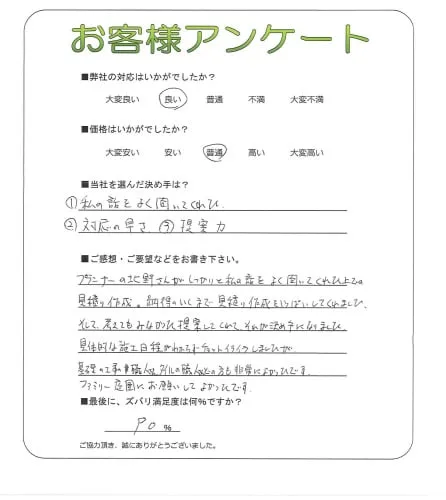 お客様アンケート
■弊社の対応はいかがでしたか?
大変良い 良い 普通 不満 大変不満
■価格はいかがでしたか?
大変安い 安い 普通 高い 大変高い
■当社を選んだ決め手は?
①私の話をよく聞いてくれた
②対応の早さ ③提案力
■ご感想・ご要望などをお書き下さい。
プランナーの北野さんがしっかりと私の話をよく聞いてくれた上での
見積り作成。納得のいくまで見積り作成を
そして、考えてもみなかった提案してくれて、それが決め手になりました
具体的な施工日程がわからずチョットイライラしましたが
基礎の工事職人、タイルの職人 の方も非常によかったです。
ファミリー庭園にお願いしてよかったです。
■最後に、ズバリ満足度は何%ですか?
90 %
ご協力頂き、誠にありがとうございました。